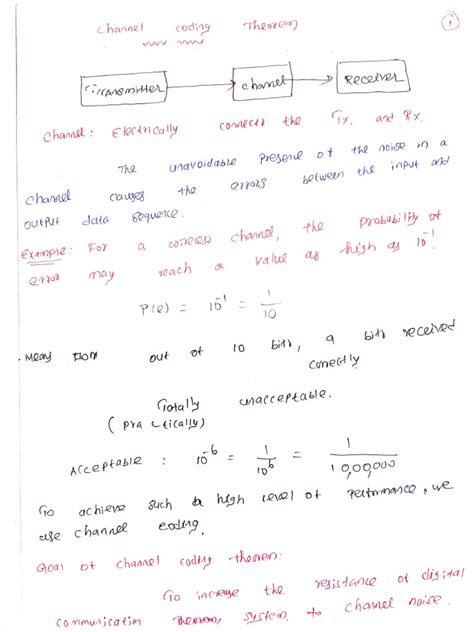 Channel coding Theorem
1
Transmitter
Channel
Receiver
Channel: Electrically connects the Tx. and Rx.
The unavoidable presence of the noise in a
channel causes the errors between the input and
output data sequence.
Example: For a wireless channel, the probability of
error may reach a value as high as 10⁻¹.
P(e) = 10⁻¹ = 1/10
out of 10 bits, 9 bits received
correctly
Totally unacceptable.
(practically)
Acceptable : 10⁻⁶ = 1/10⁶ = 1/10,00,000
To achieve such a high level of performance, we
use channel coding.
Goal of channel coding theorem:
To increase the resistance of digital
communication Theorem, system, to channel noise.